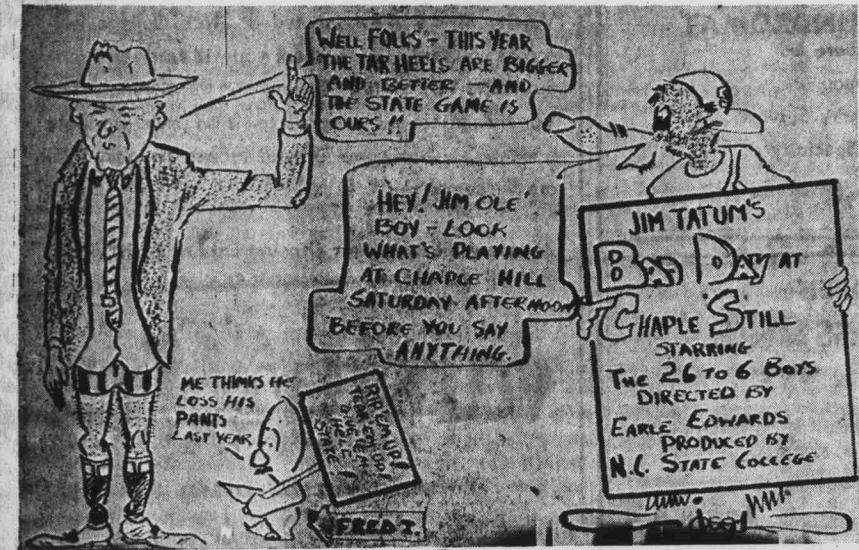 WELL FOLKS - THIS YEAR
THE TAR HEELS ARE BIGGER
AND BETTER - AND
THE STATE GAME IS
OURS !!
HEY! JIM OLE'
BOY - LOOK
WHAT'S PLAYING
AT CHAPLE HILL
SATURDAY AFTERNOON
BEFORE YOU SAY
ANYTHING.
JIM TATUM'S
BAD DAY AT
CHAPLE STILL
STARRING
THE 26 TO 6 BOYS
DIRECTED BY
EARLE EDWARDS
PRODUCED BY
N.C. STATE COLLEGE
ME THINKS HE
LOSS HIS
PANTS
LAST YEAR
RIP'EM UP!
TEAR'EM UP!
STATE!
FRED T.